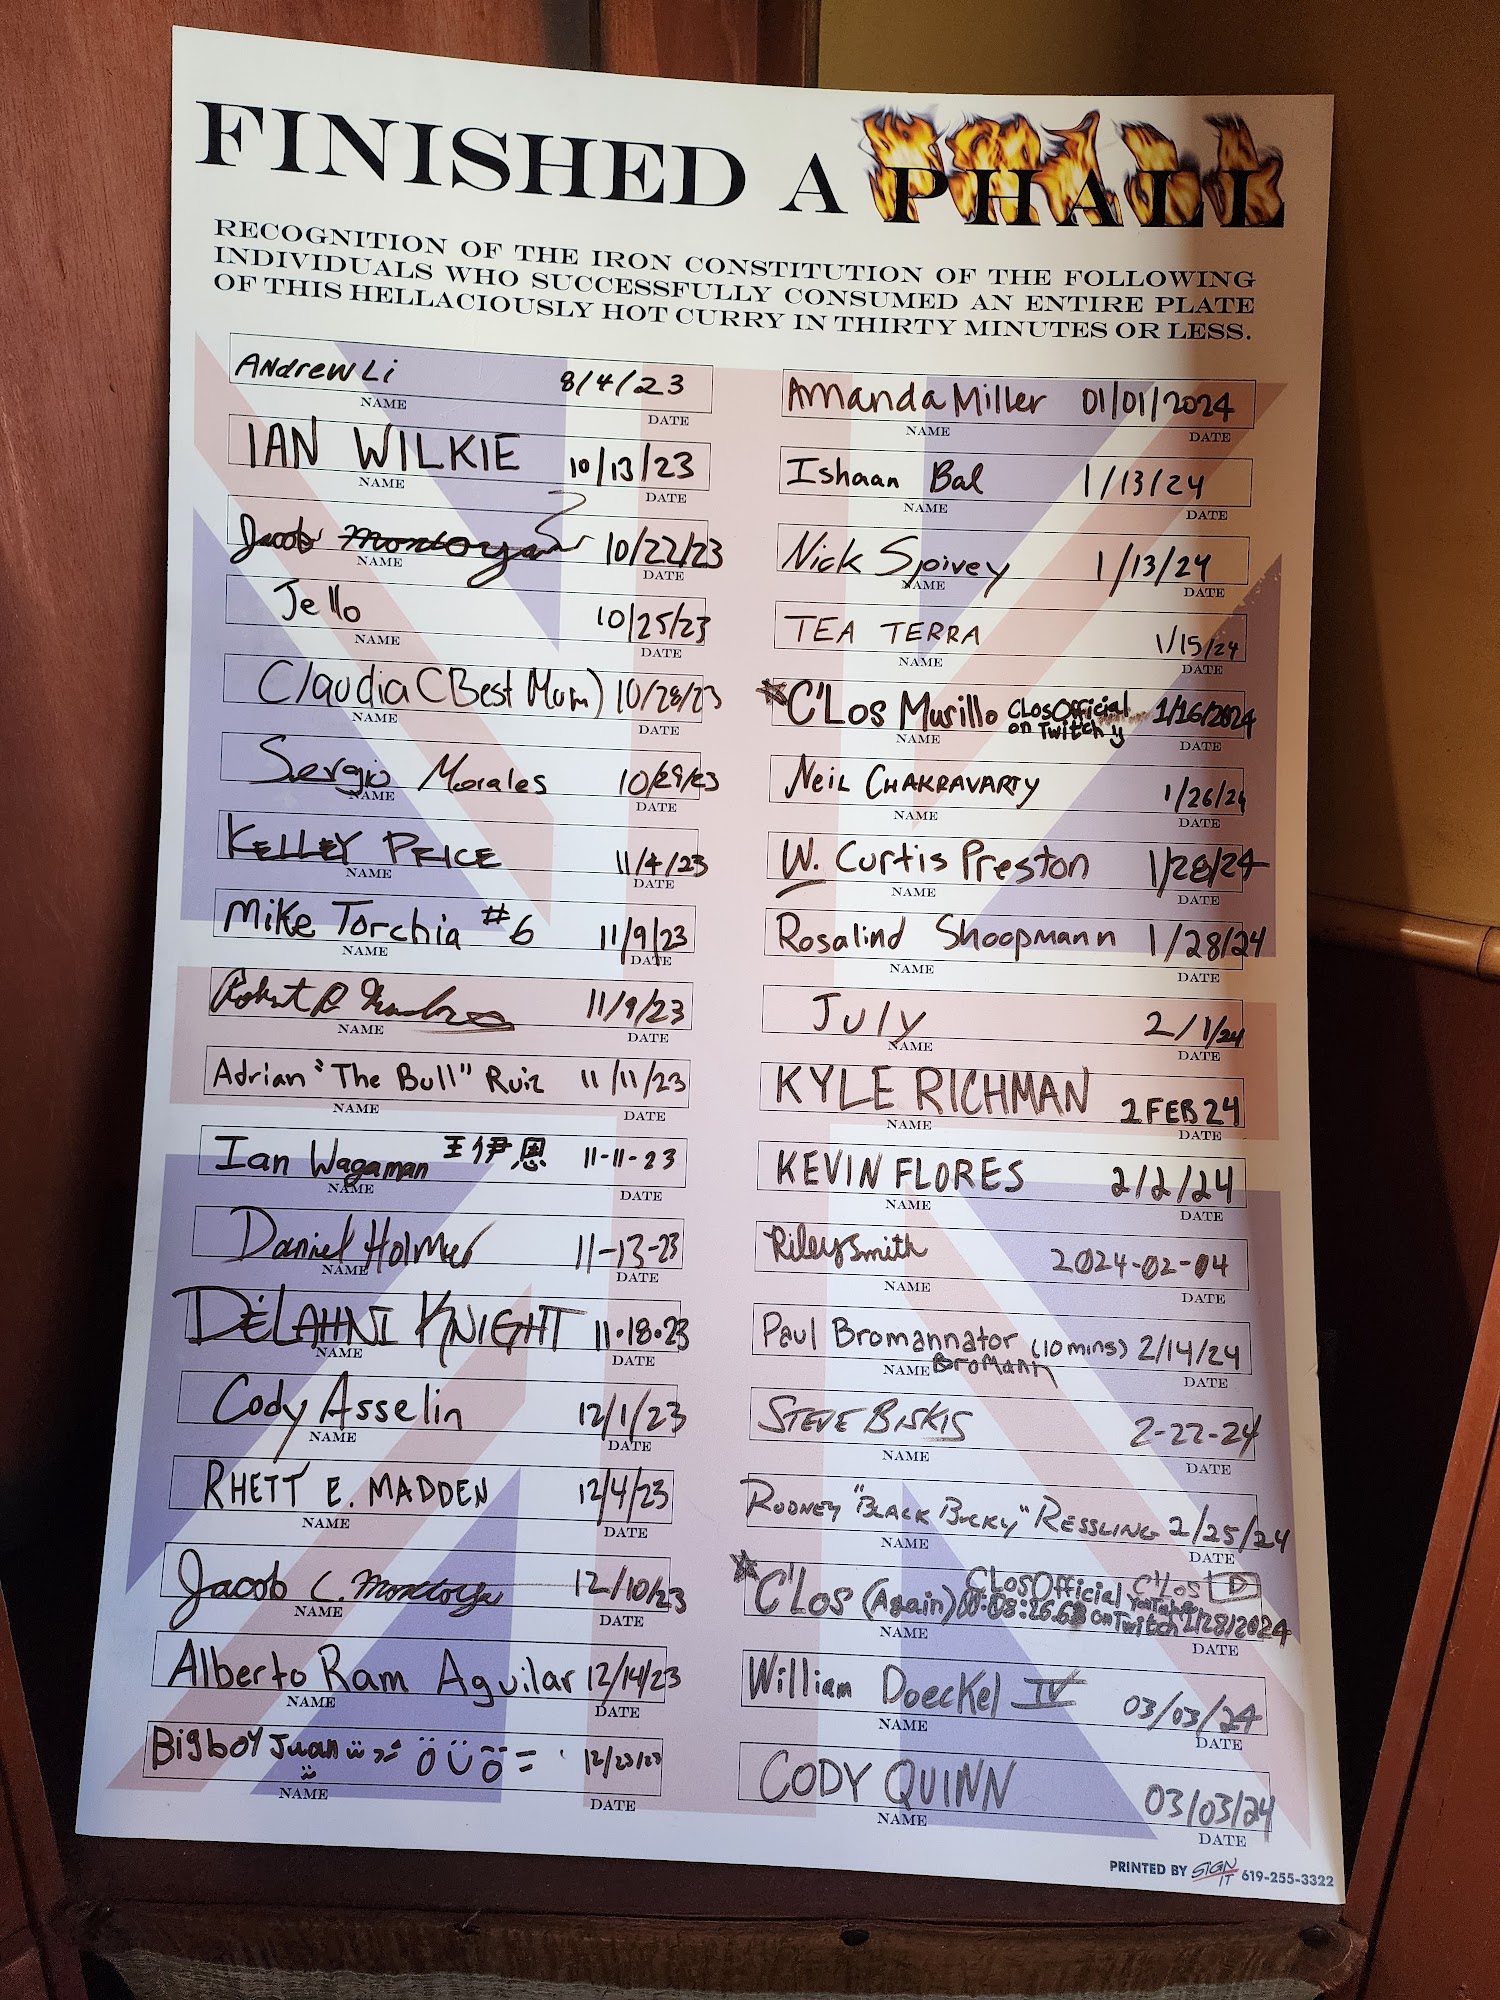 FINISHED A PHALL
RECOGNITION OF THE IRON CONSTITUTION OF THE FOLLOWING
INDIVIDUALS WHO SUCCESSFULLY CONSUMED AN ENTIRE PLATE
OF THIS HELLACIOUSLY HOT CURRY IN THIRTY MINUTES OR LESS.
Andrew Li 8/4/23
NAME DATE
IAN WILKIE 10/13/23
NAME DATE
Jacob Montoya 10/22/23
NAME DATE
Jello 10/25/23
NAME DATE
Claudia (Best Mum) 10/28/23
NAME DATE
Sergio Morales 10/29/23
NAME DATE
KELLEY PRICE 11/4/23
NAME DATE
Mike Torchia #6 11/9/23
NAME DATE
Robert 11/9/23
NAME DATE
Adrian "The Bull" Ruiz 11/11/23
NAME DATE
Ian Wagaman 王伊恩 11-11-23
NAME DATE
Daniel Holmes 11-13-23
NAME DATE
DELAHNI KNIGHT 11.18.23
NAME DATE
Cody Asselin 12/1/23
NAME DATE
RHETT E. MADDEN 12/4/23
NAME DATE
Jacob C. Montoya 12/10/23
NAME DATE
Alberto Ram Aguilar 12/14/23
NAME DATE
Bigboy Juan 12/23/23
NAME DATE
Amanda Miller 01/01/2024
NAME DATE
Ishaan Bal 1/13/24
NAME DATE
Nick Spivey 1/13/24
NAME DATE
TEA TERRA 1/15/24
NAME DATE
C'Los Murillo CLosOfficial on Twitch 1/16/2024
NAME DATE
NEIL CHAKRAVARTY 1/26/24
NAME DATE
W. Curtis Preston 1/28/24
NAME DATE
Rosalind Shoopmann 1/28/24
NAME DATE
July 2/1/24
NAME DATE
KYLE RICHMAN 2 FEB 24
NAME DATE
KEVIN FLORES 2/2/24
NAME DATE
Riley Smith 2024-02-04
NAME DATE
Paul Bromannator (10 mins) 2/14/24
NAME BroMann DATE
STEVE BISKIS 2-22-24
NAME DATE
RODNEY "BLACK BUCKY" RESSLING 2/25/24
NAME DATE
C'Los (Again) CLosOfficial on Twitch C'Los YouTube 2/28/2024
NAME DATE
William Doeckel IV 03/03/24
NAME DATE
CODY QUINN 03/03/24
NAME DATE
PRINTED BY SIGN IT 619-255-3322